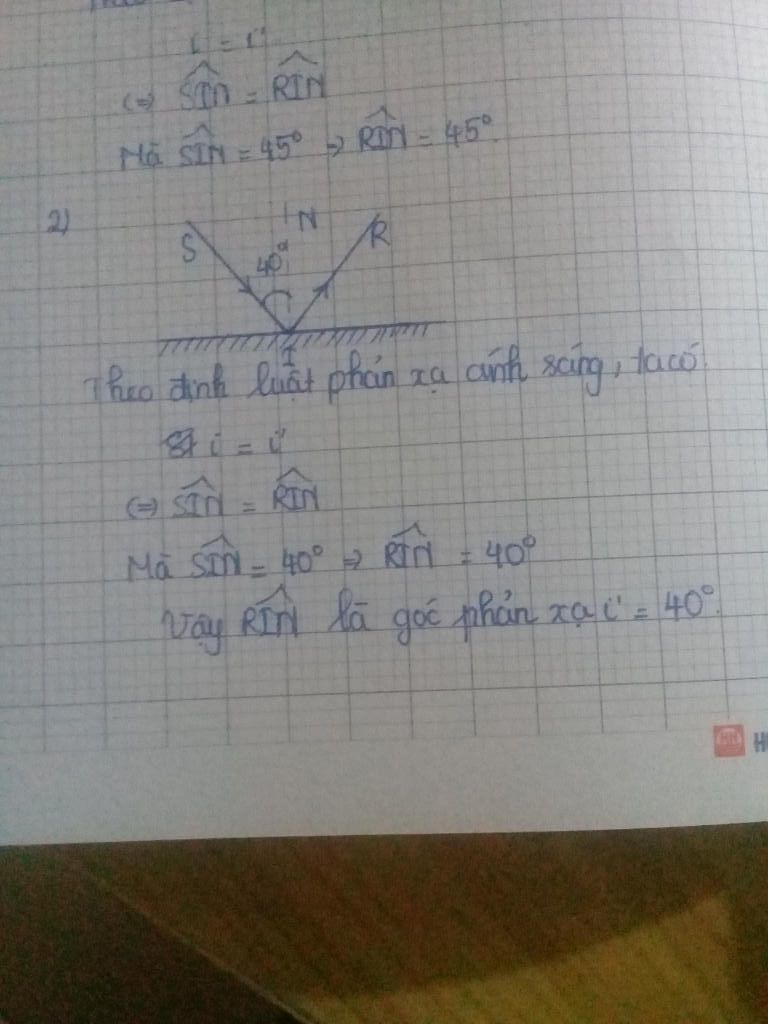 i = i'
⇔ SIN = RIN
Mà SIN = 45° ⇒ RIN = 45°
2)
N
S
R
40°
I
Theo định luật phản xạ ánh sáng, ta có
i = i'
⇔ SIN = RIN
Mà SIN = 40° ⇒ RIN = 40°
Vậy RIN là góc phản xạ i' = 40°.
HH